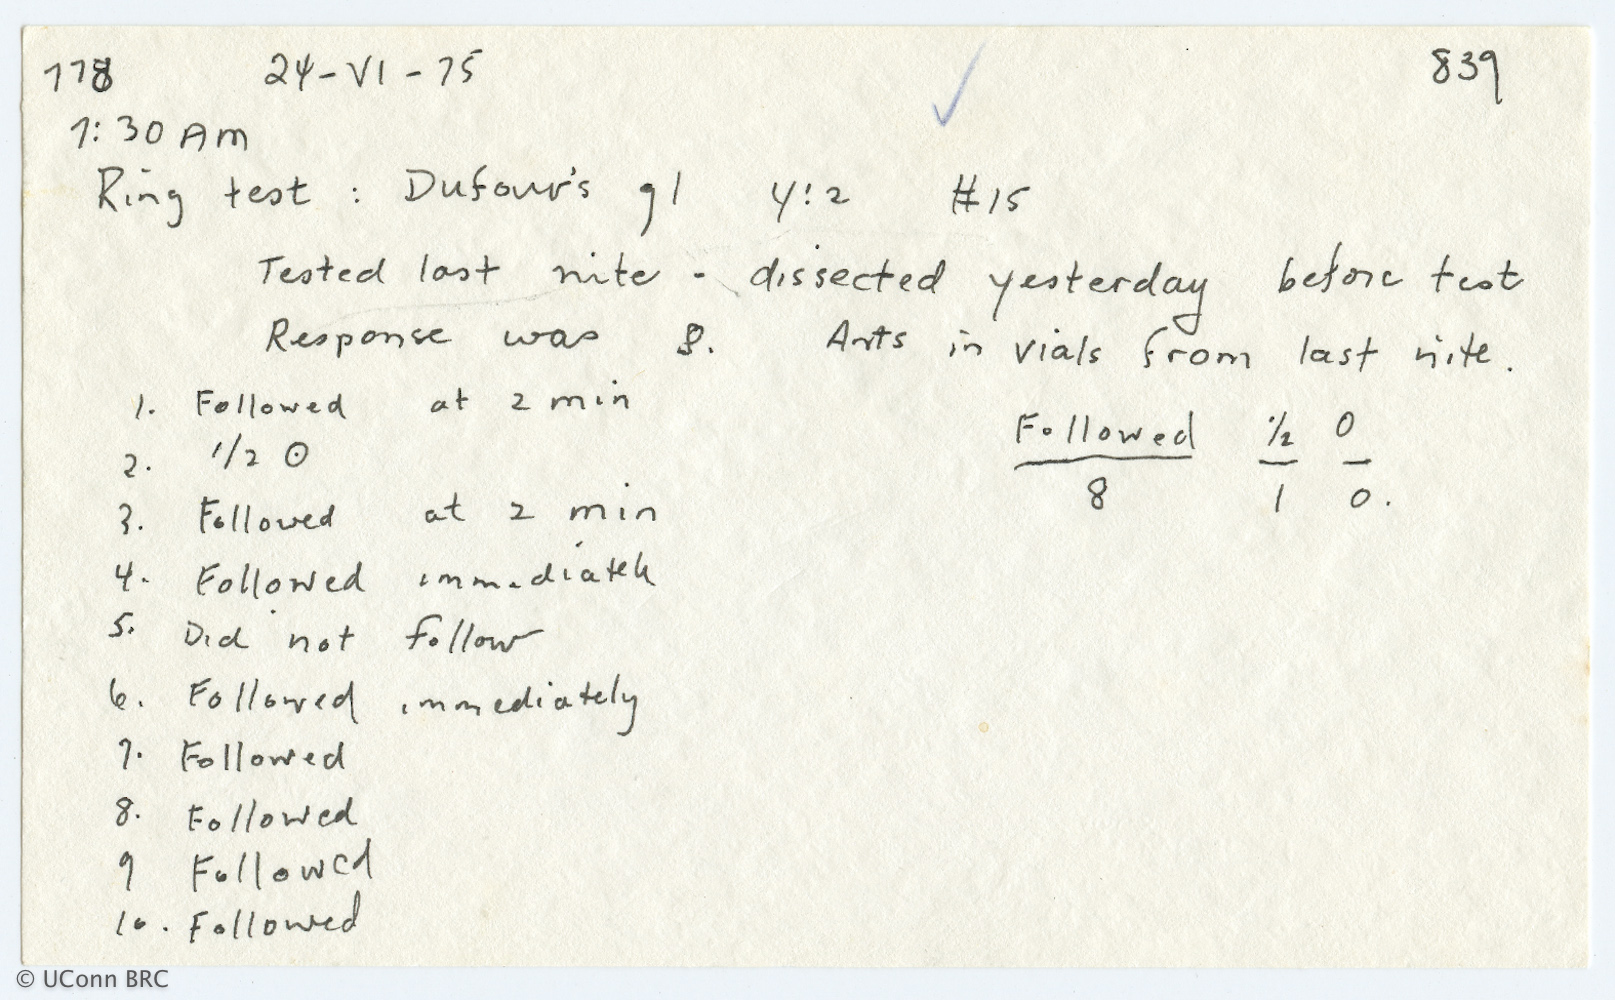 778 24-VI-75 839
7:30 AM
Ring test : Dufour's gl 4:2 #15
Tested last nite - dissected yesterday before test
Response was 8. Ants in vials from last nite.
1. Followed at 2 min
2. 1/2 ʘ
3. Followed at 2 min
4. Followed immediately
5. Did not follow
6. Followed immediately
7. Followed
8. Followed
9 Followed
10. Followed
Followed 1/2 0
8 1 0.
© UConn BRC